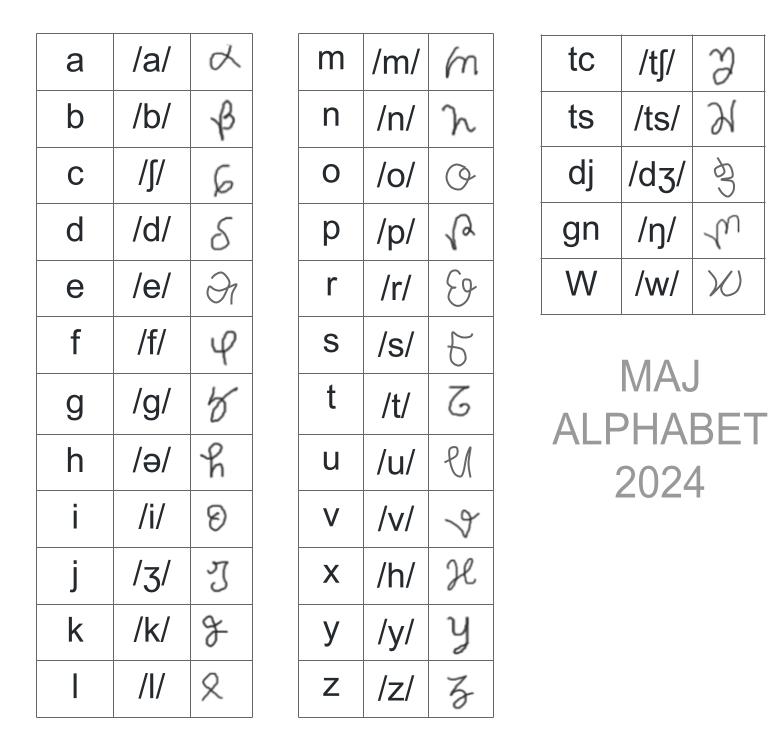 a /a/
b /b/
c /ʃ/
d /d/
e /e/
f /f/
g /g/
h /ə/
i /i/
j /ʒ/
k /k/
l /l/
m /m/
n /n/
o /o/
p /p/
r /r/
s /s/
t /t/
u /u/
v /v/
x /h/
y /y/
z /z/
tc /tʃ/
ts /ts/
dj /dʒ/
gn /ŋ/
W /w/
MAJ
ALPHABET
2024